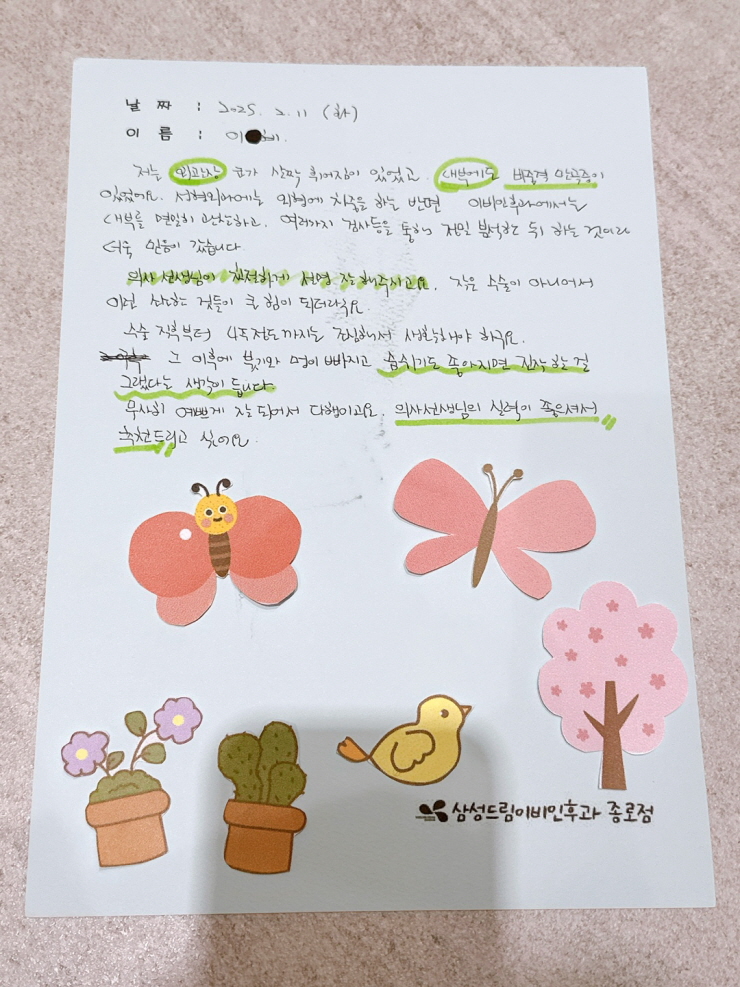 날 짜 : 2025. 2. 11 (화)
이 름 : 이 비.
저는 외관상 코가 살짝 휘어짐이 있었고. 내부에도 비중격 만곡증이
있었어요. 성형외과에는 외형에 치중을 하는 반면 이비인후과에서는
내부를 면밀히 관찰하고, 여러가지 검사등을 통해 정밀 분석한 뒤 하는 것이라
더욱 믿음이 갔습니다.
의사 선생님이 친절하게 설명 잘 해주시고요. 작은 수술이 아니어서
이런 것들이 큰 힘이 되더라구요.
수술 직후부터 4주정도 까지는 조심해서 생활해야 하구요.
그 이후에 붓기와 멍이 빠지고 숨쉬기도 좋아지면 진작 할 걸
그랬다는 생각이 듭니다.
무사히 예쁘게 잘 되어서 다행이고요. 의사선생님의 실력이 좋으셔서
추천드리고 싶어요.
삼성드림이비인후과 종로점